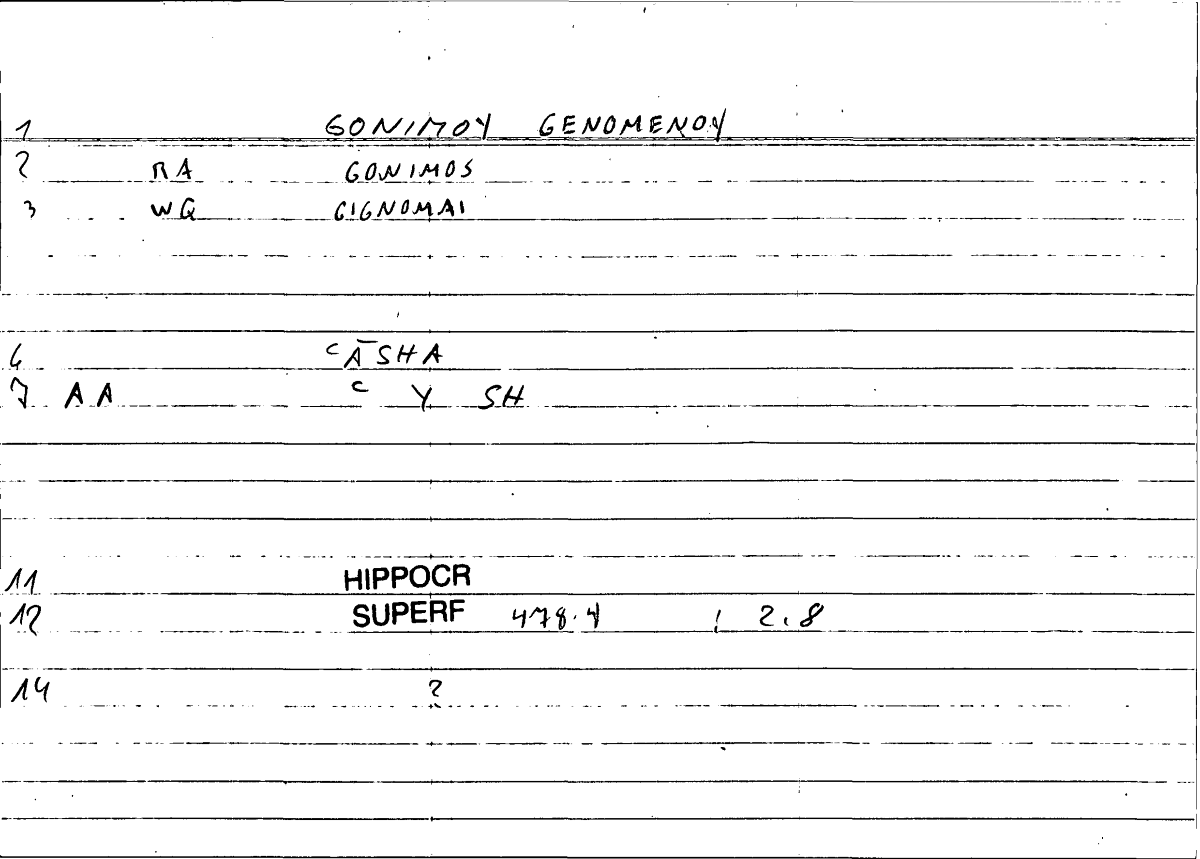 1 GONIMOY GENOMENOY
2 RA GONIMOS
3 WQ GIGNOMAI
6 ᶜĀSHA
7 AA ᶜ Y SH
11 HIPPOCR
12 SUPERF 478.4 ; 2.8
14 ?